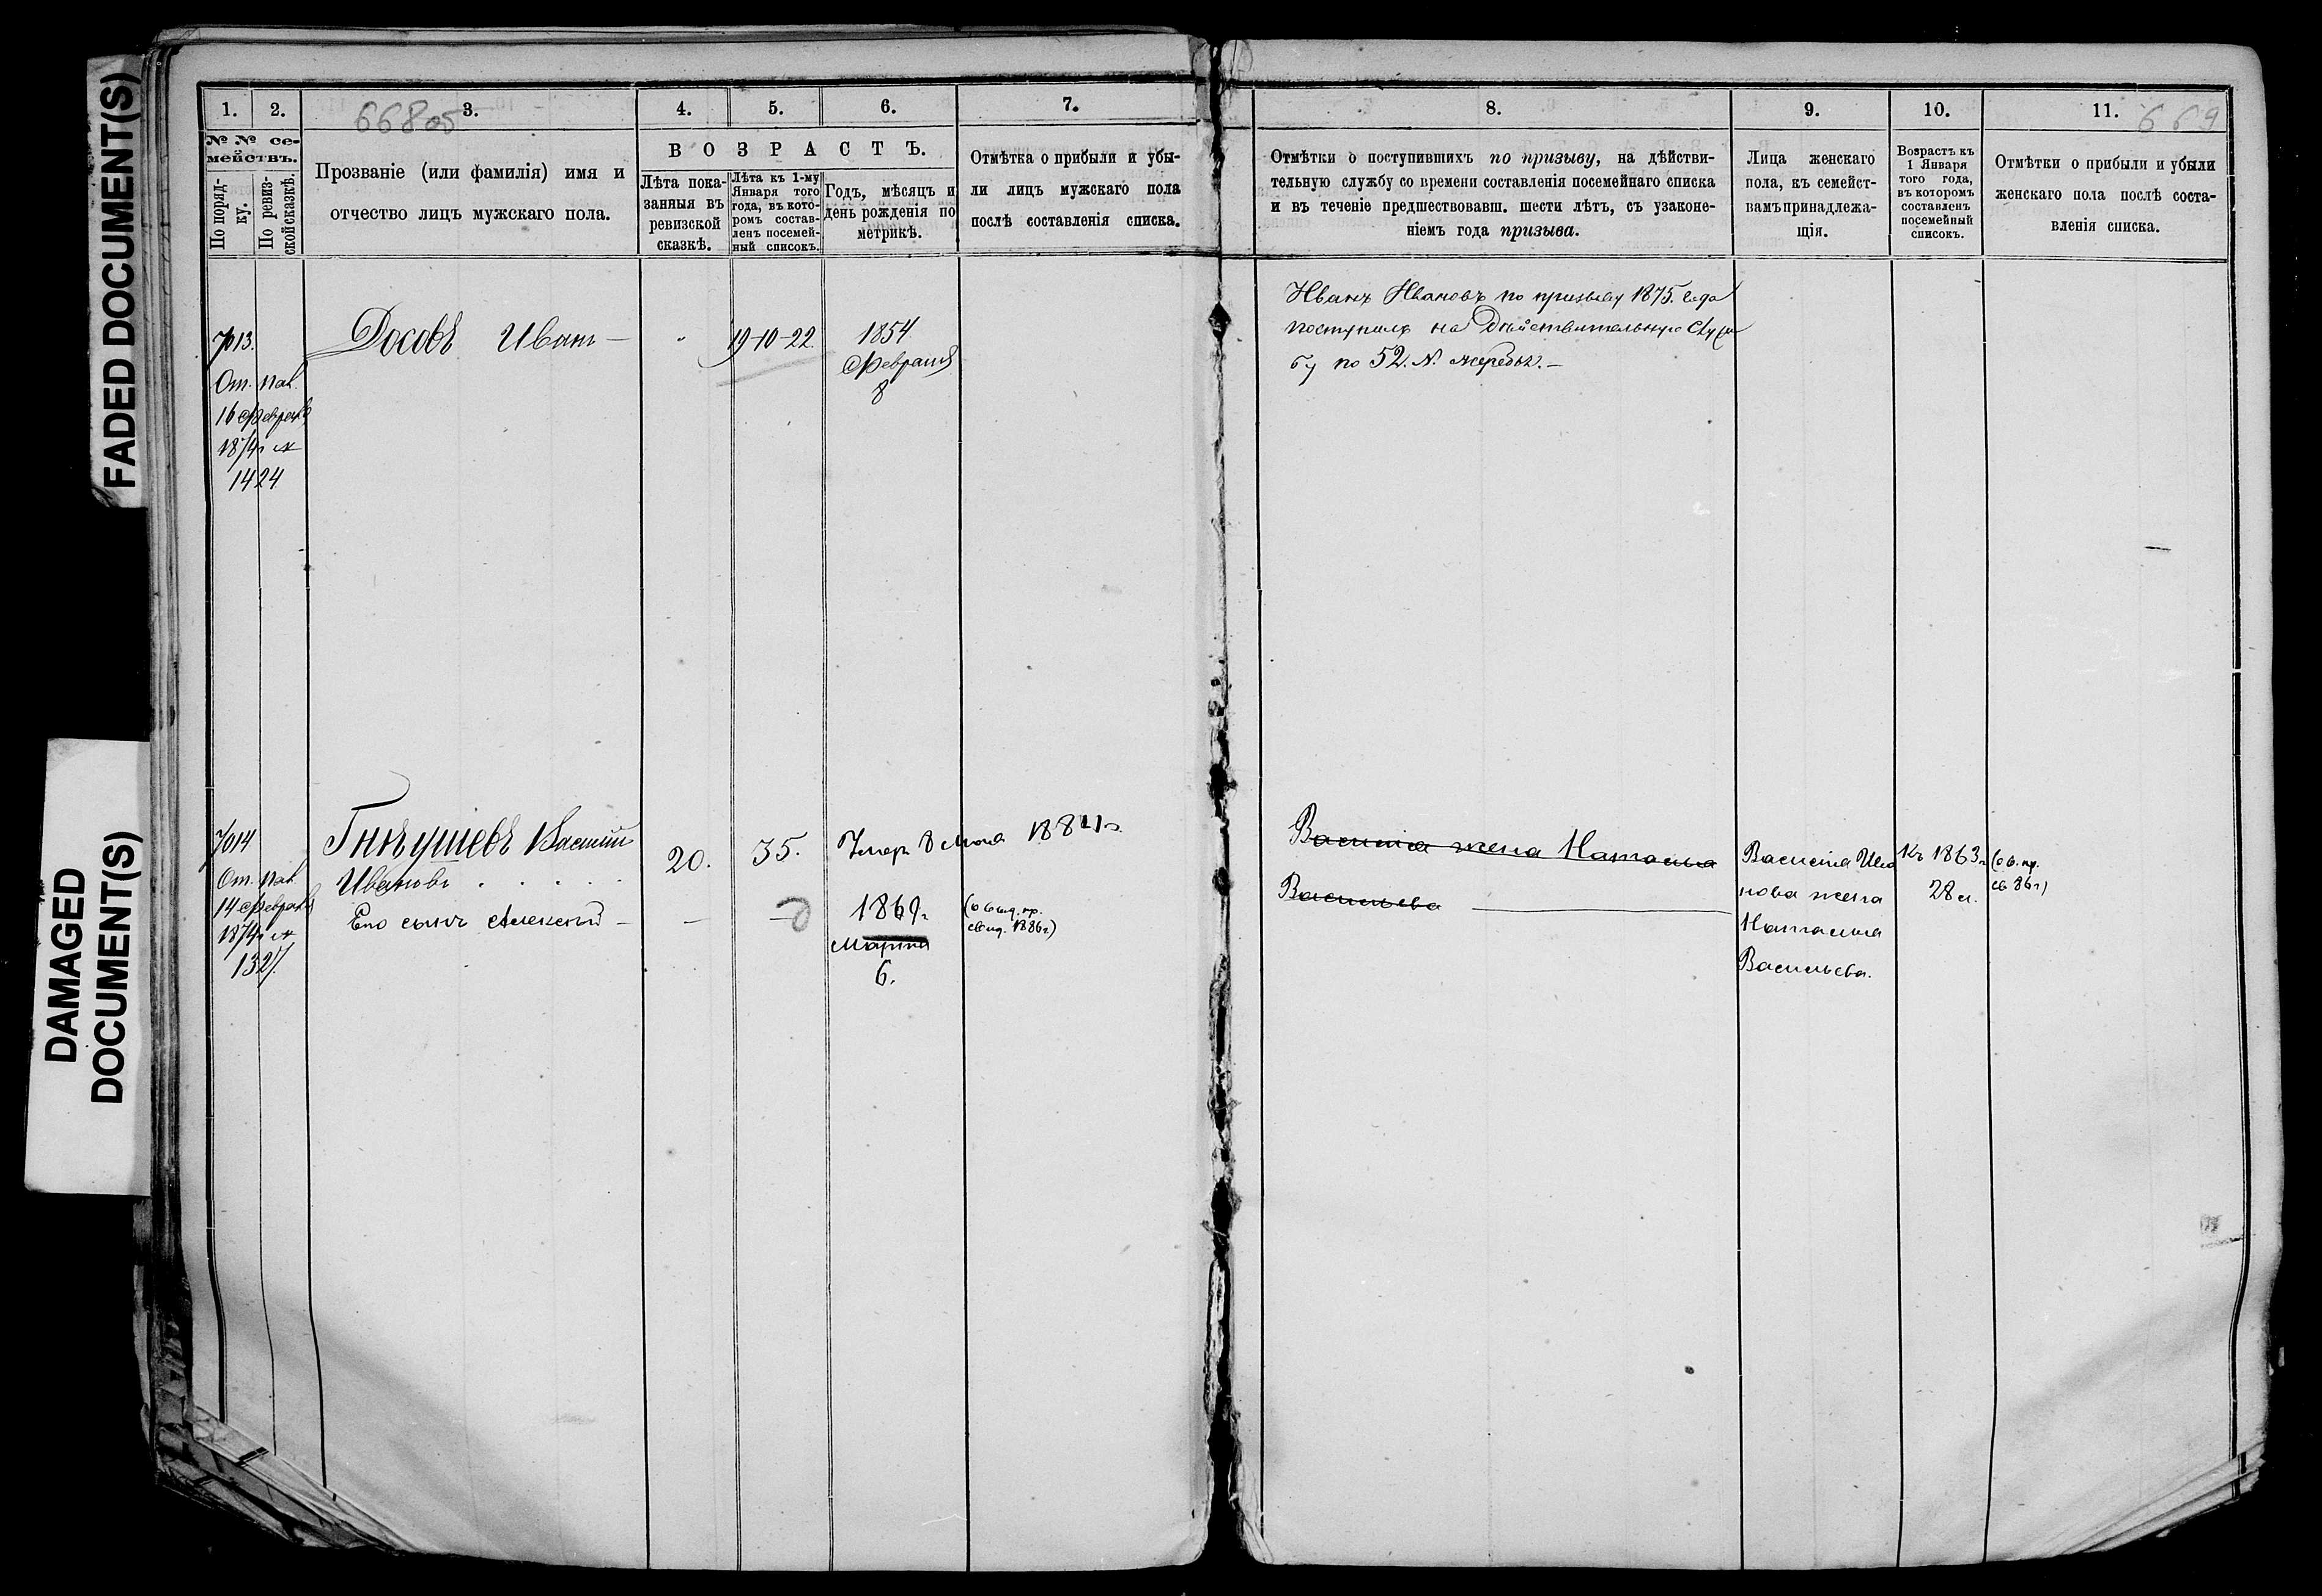 FADED DOCUMENT(S)
DAMAGED
DOCUMENT(S)
668об
1.
2.
3.
4.
5.
6.
7.
№ № се-
мействъ.
По поряд-
ку.
По ревиз-
ской сказкѣ.
Прозваніе (или фамилія) имя и
отчество лицъ мужскаго пола.
ВОЗРАСТЪ.
Лѣта пока-
занныя въ
ревизской
сказкѣ.
Лѣта къ 1-му
Января того
года, въ кото-
ромъ состав-
ленъ посемей-
ный списокъ.
Годъ, мѣсяцъ и
день рожденія по
метрикѣ.
Отмѣтка о прибыли и убы-
ли лицъ мужскаго пола
послѣ составленія списка.
7013.
От. пав.
16 февраля
1874 г №
1424
Досовъ Иванъ —
19-10-22
1854.
Февраля
8
7014
От. пав.
14 февраля
1874 г №
1327.
Гнѣушевъ Василій
Ивановъ . . . . .
Его сынъ Алексѣй —
20.
35.
Умеръ 8 Мая
—
1869г.
Марта
6.
669
8.
9.
10.
11.
Отмѣтки о поступившихъ по призыву, на дѣйстви-
тельную службу со времени составленія посемейнаго списка
и въ теченіе предшествовавш. шести лѣтъ, съ узаконе-
ніемъ года призыва.
Лица женскаго
пола, къ семейст-
вамъ принадлежа-
щія.
Возрастъ къ
1 Января
того года,
въ которомъ
составленъ
посемейный
списокъ.
Отмѣтки о прибыли и убыли
женскаго пола послѣ соста-
вленія списка.
Иванъ Ивановъ по призыву 1875. года
поступилъ на Дѣйствительную Служ
бу по 52. №. жеребья. —
Василія жена Наталья
Васильева
Василія Ива
нова жена
Наталья
Васильева.
Къ 1863 г.
28 л.